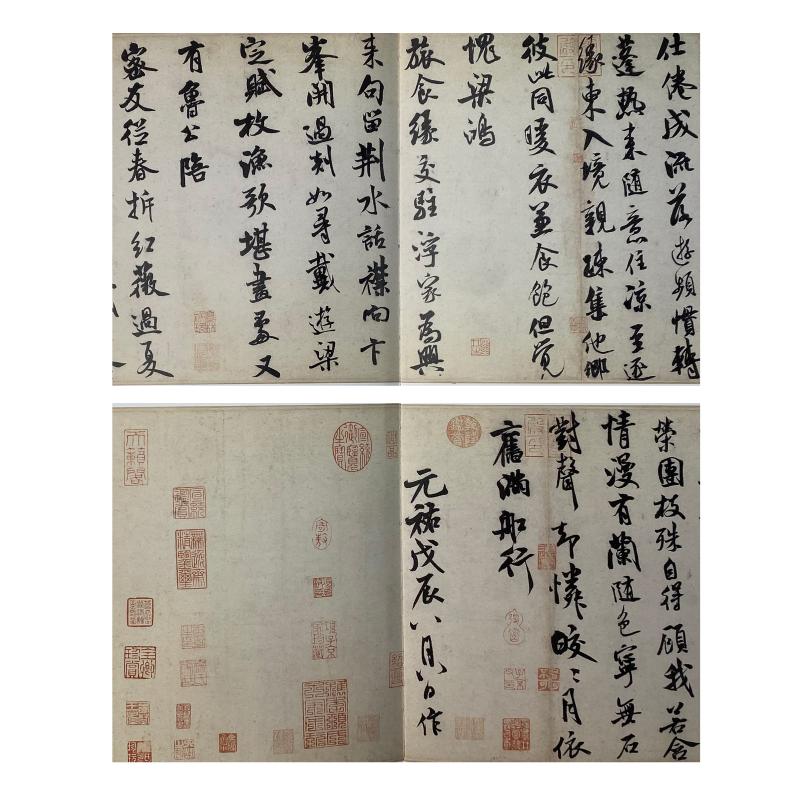 仕倦成流落遊頻慣轉
蓬熱來隨意住凉至逐
緣東入境親疎集他鄉
彼此同暖衣並食飽但覺
愧梁鴻
旅食緣交駐浮家為興
來句留荆水話襟向卞
峯開過剡如尋戴遊梁
定賦枚漁歌堪畫處又
有魯公陪
密友從春拆紅薇過夏
榮團枝殊自得顧我若含
情漫有蘭隨色寧無石
對聲却憐皎〻月依
舊滿船行
元祐戊辰八月八日作
宣統御覽之寶
天籟閣